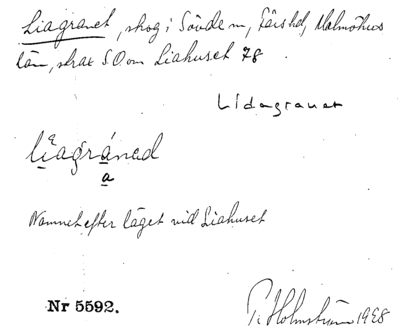 Liagranet, skog i Sövde sn, Färs hd, Malmöhus
län, strax SO om Liahuset 78
Lidagranet
liagráned
a
Namnet efter läget vid Liahuset
Nr 5592.
P. Holmström 1928